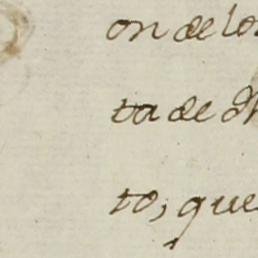 on de los
ta de
to, que